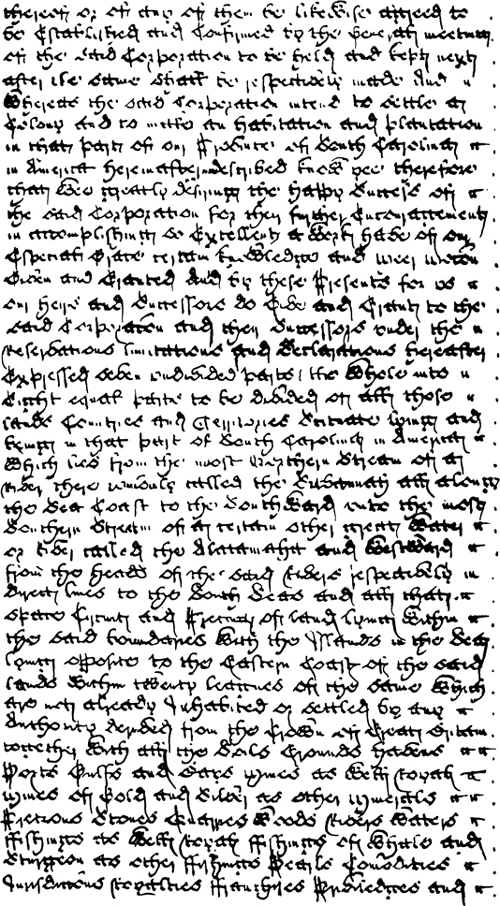 thereon or on any of them be likewise agreed to
be Established and Confirmed by the general meeting
of the said Corporation to be held and kept next
after the same shall be respectively made And
Whereas the said Corporation intend to settle a
Colony and to make an habitation and plantation
in that part of our Province of South Carolina
in America hereinafter described know yee therefore
that wee greatly desiring the happy success of
the said Corporation for their further Encouragement
in accomplishing so Excellent a work have of our
Especial Grace certain knowledge and meer motion
Given and Granted And by these Presents for us
our heirs and successors do Give and Grant to the
said Corporation and their successors under the
reservations limitations and Declarations hereafter
Expressed seven undivided parts the Whole into
Eight equal parts to be divided of all those
lands Countries and Territories situate lying and
being in that part of South Carolina in America
which lies from the most Northern Stream of a
river there commonly called the Savannah all along
the Sea Coast to the Southward unto the most
Southern Stream of a certain other great Water
or River called the Alatamaha and Westward
from the heads of the said Rivers respectively in
direct lines to the South Seas and all that
space Circuit and Precinct of land lying within
the said boundaries with the Islands in the Sea
lying opposite to the Eastern Coast of the said
lands within twenty leagues of the same which
are not already Inhabited or settled by any
Authority derived from the Crown of Great Britain
together with all the Soils Grounds havens
Ports Gulfs and Bays mines as well royal
mines of Gold and Silver as other minerals
Precious Stones Quarries Woods Rivers Waters
ffishings as well royal ffishings of Whale and
Sturgeon as other ffishings Pearls Comodities
Jurisdictions royalties ffranchises Priviledges and